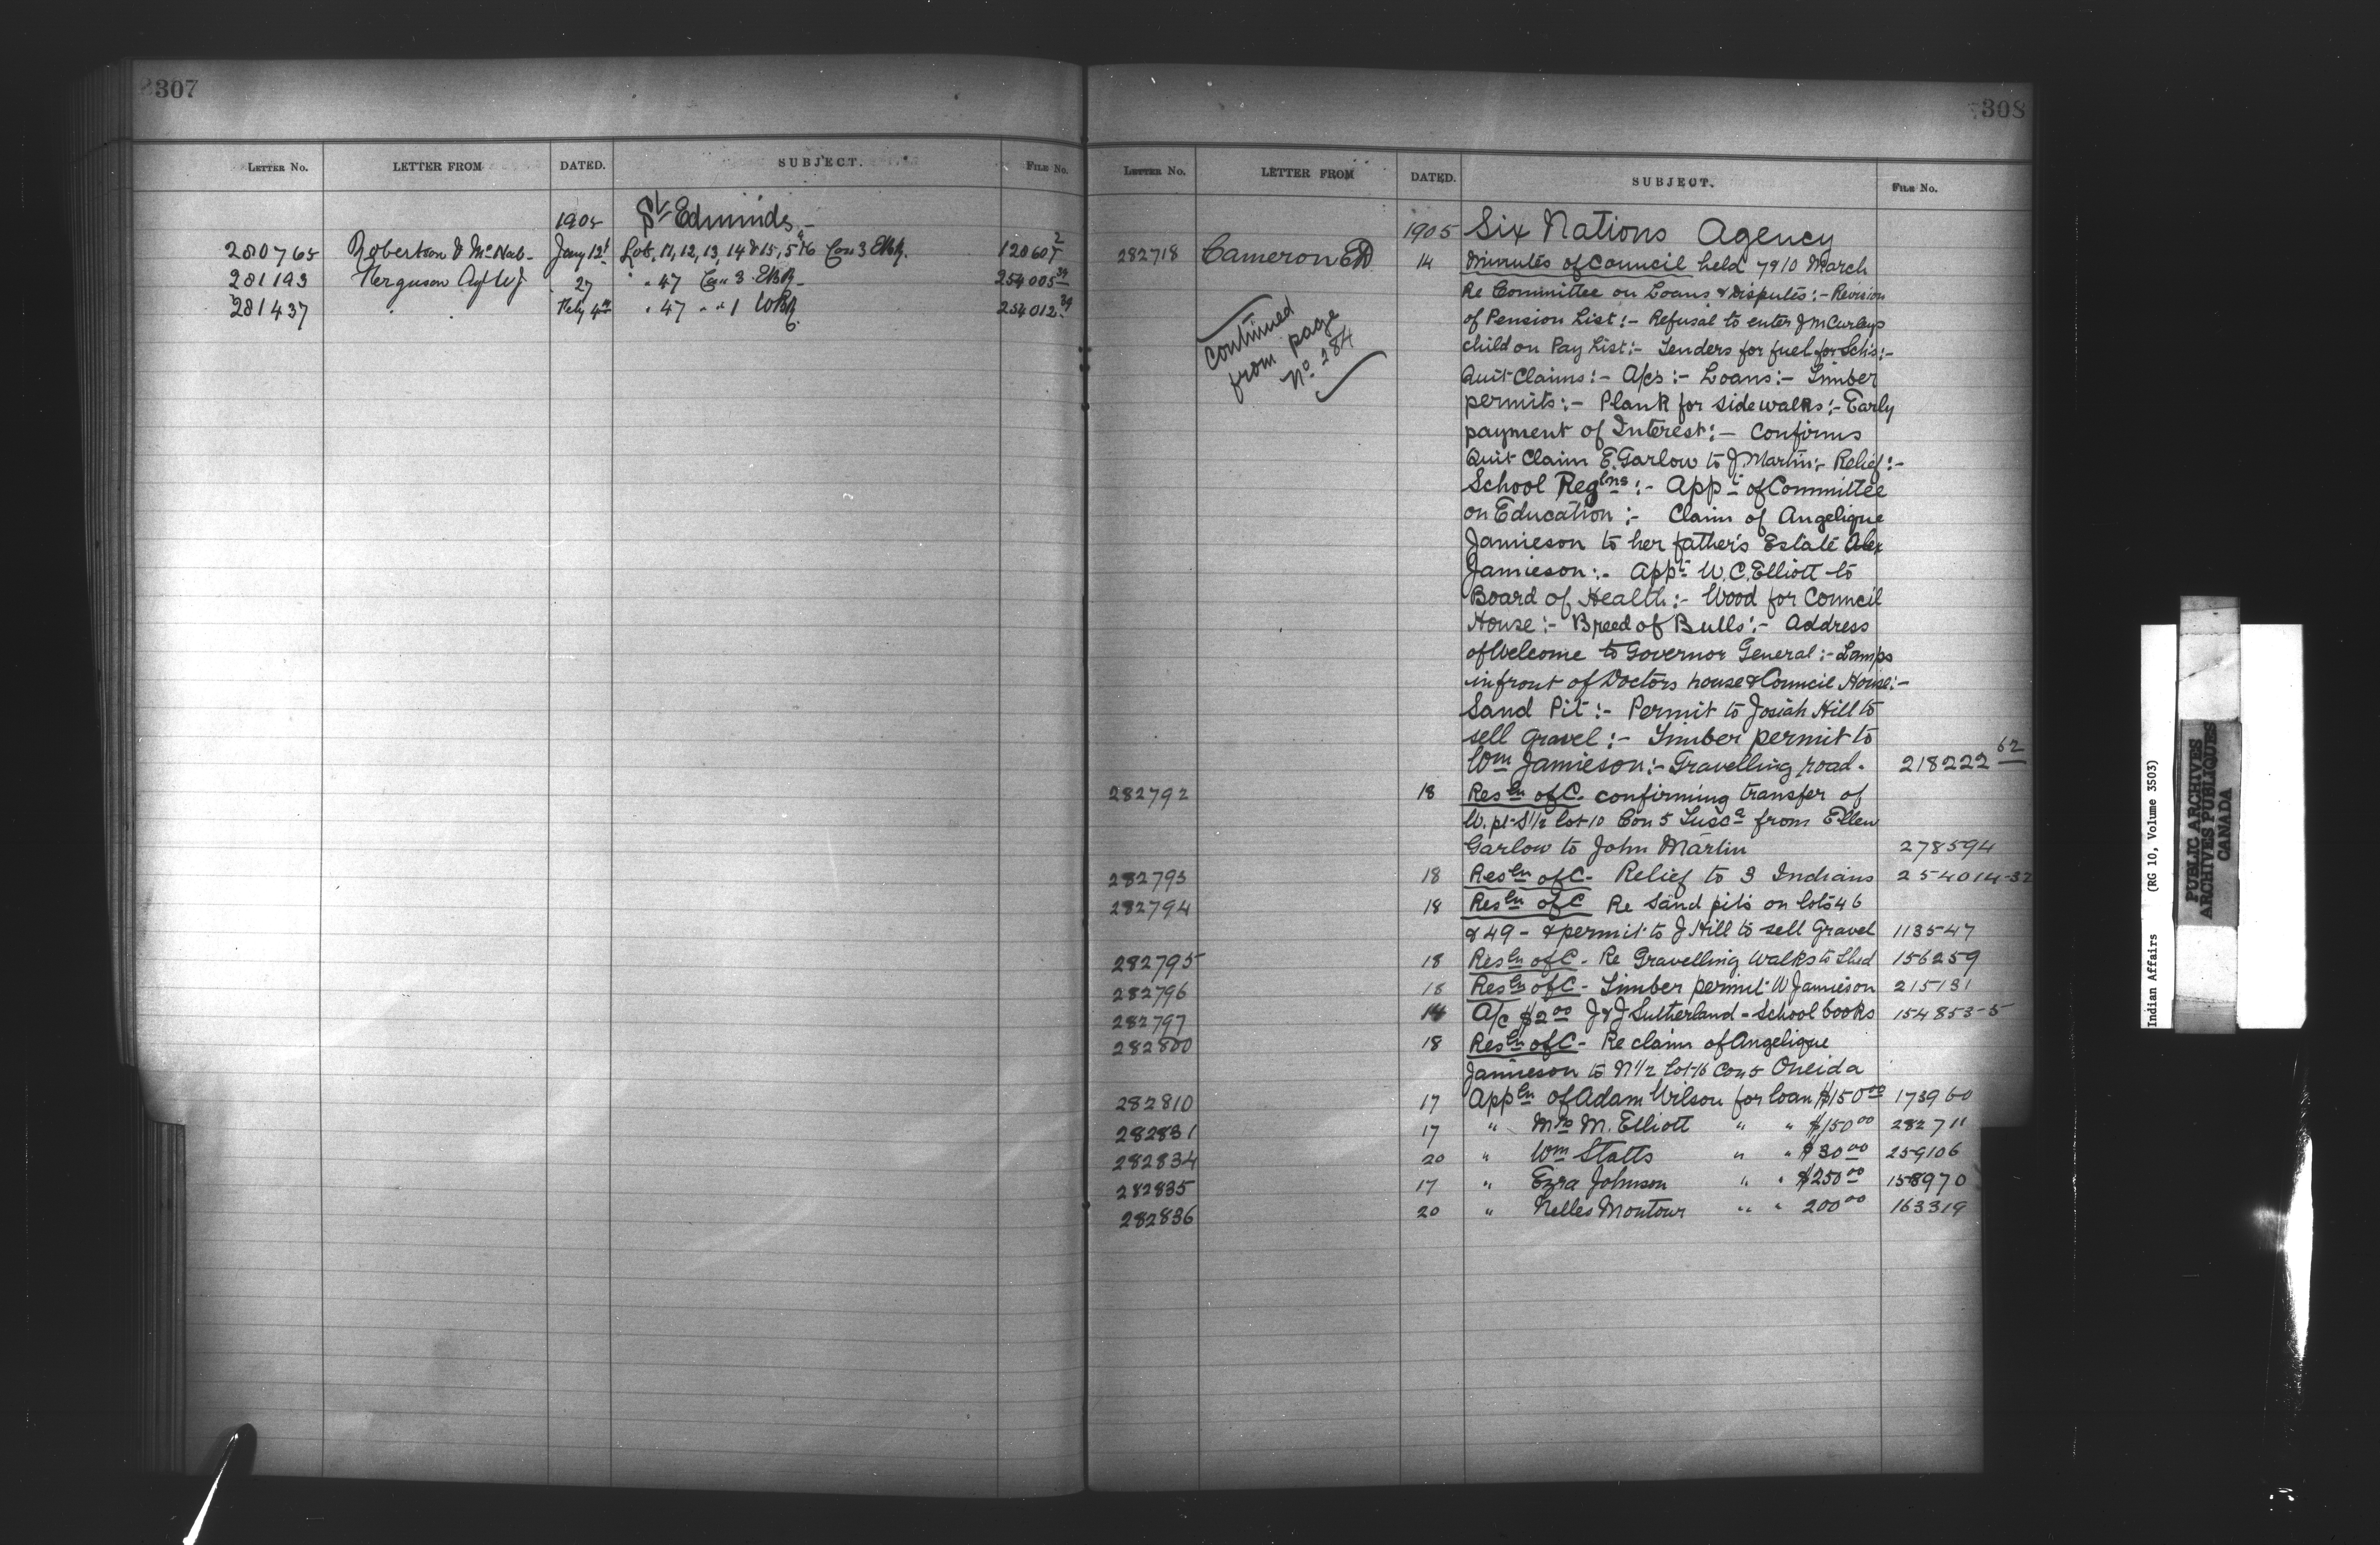 307
LETTER NO. LETTER FROM DATED. SUBJECT. FILE NO.
1905 St Edmunds -
280765 Robertson & McNab - Jany 12 Lots 11, 12, 13, 14 & 15, 5 & 16 Con 3 EBR. 120607 2
281193 Ferguson Agt W J 27 " 47 Con 3 EBR - 254005 34
281437 " " Feby 4th " 47 " " 1 WBR 254012 34
308
LETTER NO. LETTER FROM DATED. SUBJECT. FILE NO.
1905 Six Nations Agency
282718 Cameron ED 14 Minutes of Council held 7 & 10 March
Continued
from page
No. 284
Re Committee on Loans & Disputes :- Revision
of Pension List :- Refusal to enter J McCurleys
child on Pay List :- Tenders for fuel for Schs :-
Quit Claims :- A/cs :- Loans :- Timber
permits :- Plank for sidewalks :- Early
payment of Interest :- Confirms
Quit Claim E. Garlow to J Martin :- Relief :-
School Reglns :- Appt of Committee
on Education :- Claim of Angelique
Jamieson to her father's Estate Alex
Jamieson :- Appt W. C. Elliott to
Board of Health :- Wood for Council
House :- Breed of Bulls :- Address
of Welcome to Governor General :- Lamps
in front of Doctors house & Council House :-
Sand Pit :- Permit to Josiah Hill to
sell gravel :- Timber permit to
Wm Jamieson :- Gravelling road. 218222 62
282792 18 Resln of C. confirming transfer of
W. pt S 1/2 Lot 10 Con 5 Tusca from Ellen
Garlow to John Martin 278594
282793 18 Resln of C - Relief to 3 Indians 254014-32
282794 18 Resln of C Re Sand pits on lots 46
& 49 - & permit to J Hill to sell Gravel 113547
282795 18 Resln of C - Re Gravelling Walks to Shed 156259
282796 18 Resln of C - Timber permit W Jamieson 215131
282797 14 A/c $2.00 J & J Sutherland - School books 154853-5
282800 18 Resln of C - Re claim of Angelique
Jamieson to N 1/2 Lot 16 Con 5 Oneida
282810 17 Appln of Adam Wilson for loan $150.00 173960
282831 17 " Mrs M. Elliott " " $150.00 282711
282834 20 " Wm Statts " " $30.00 259106
282835 17 " Ezra Johnson " " $250.00 158970
282836 20 " Nelles Montour " " 200.00 163319
Indian Affairs (RG 10, Volume 3503)
PUBLIC ARCHIVES
ARCHIVES PUBLIQUES
CANADA